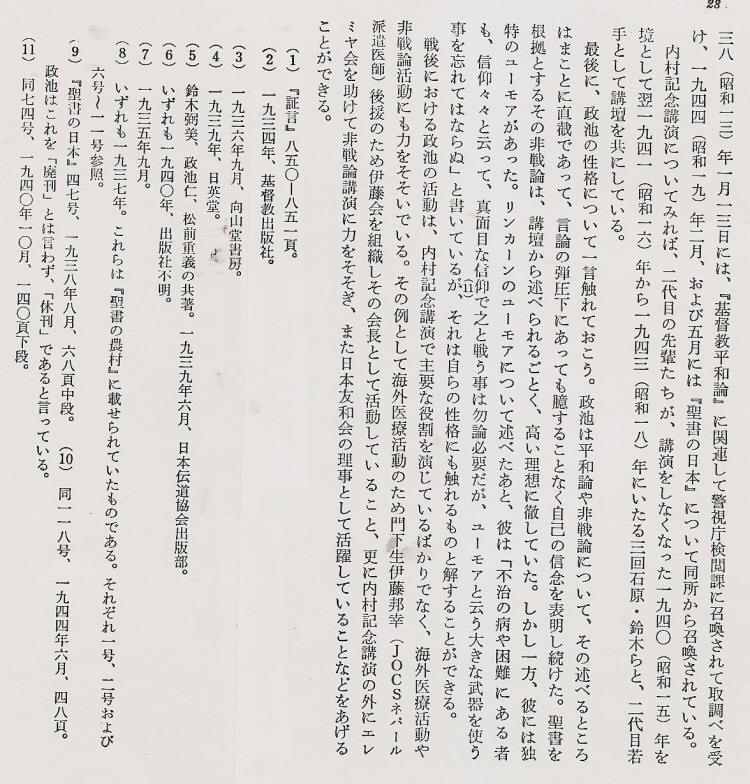 28
三八(昭和一三)年一月一三日には、『基督教平和論』に関連して警視庁検閲課に召喚されて取調べを受
け、一九四四(昭和一九)年二月、および五月には『聖書の日本』について同所から召喚されている。
内村記念講演についてみれば、二代目の先輩たちが、講演をしなくなった一九四〇(昭和一五)年を
境として翌一九四一(昭和一六)年から一九四三(昭和一八)年にいたる三回石原・鈴木らと、二代目若
手として講壇を共にしている。
最後に、政池の性格について一言触れておこう。政池は平和論や非戦論について、その述べるところ
はまことに直截であって、言論の弾圧下にあっても臆することなく自己の信念を表明し続けた。聖書を
根拠とするその非戦論は、講壇から述べられるごとく、高い理想に徹していた。しかし一方、彼には独
特のユーモアがあった。リンカーンのユーモアについて述べたあと、彼は「不治の病や困難にある者
も、信仰々々と云って、真面目な信仰で之と戦う事は勿論必要だが、ユーモアと云う大きな武器を使う
事を忘れてはならぬ」と書いているが、(11)それは自らの性格にも触れるものと解することができる。
戦後における政池の活動は、内村記念講演で主要な役割を演じているばかりでなく、海外医療活動や
非戦論活動にも力をそそいでいる。その例として海外医療活動のため門下生伊藤邦幸(JOCSネパール
派遣医師)後援のため伊藤会を組織しその会長として活動していること、更に内村記念講演の外にエレ
ミヤ会を助けて非戦論講演に力をそそぎ、また日本友和会の理事として活躍していることなどをあげる
ことができる。
(1) 『証言』八五〇―八五一頁。
(2) 一九三四年、基督教出版社。
(3) 一九三六年九月、向山堂書房。
(4) 一九三九年、日英堂。
(5) 鈴木弼美、政池仁、松前重義の共著。一九三九年六月、日本伝道協会出版部。
(6) いずれも一九四〇年、出版社不明。
(7) 一九三五年九月。
(8) いずれも一九三七年。これらは『聖書の農村』に載せられていたものである。それぞれ一号、二号および
六号〜一一号参照。
(9) 『聖書の日本』四七号、一九三八年八月、六八頁中段。 (10) 同一一八号、一九四四年六月、四八頁。
政池はこれを「廃刊」とは言わず、「休刊」であると言っている。
(11) 同七四号、一九四〇年一〇月、一四〇頁下段。